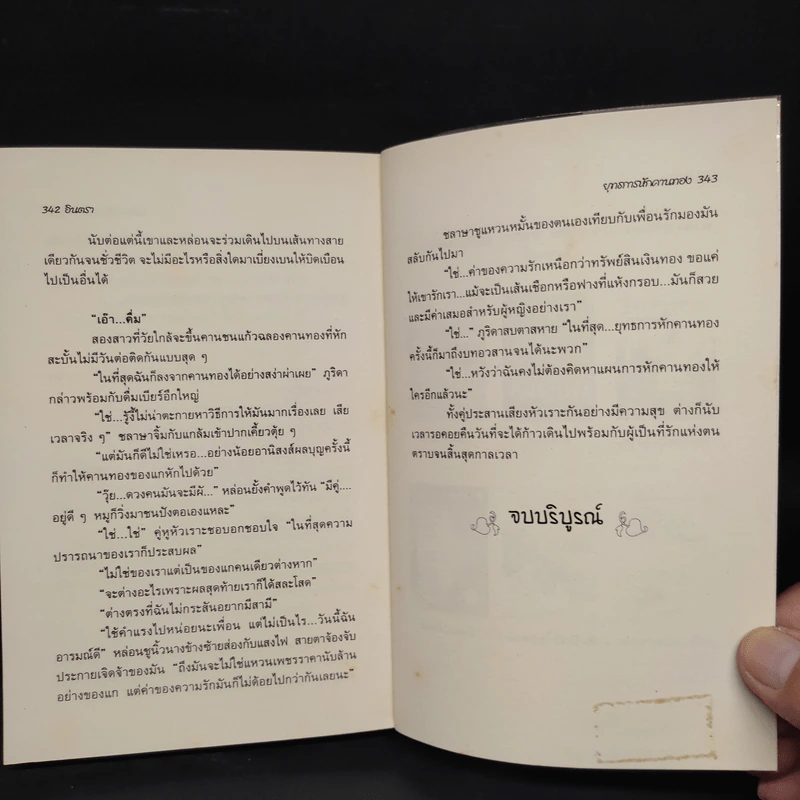 342 อินตรา
นับต่อแต่นี้เขาและหล่อนจะร่วมเดินไปบนเส้นทางสาย
เดียวกันจนชั่วชีวิต จะไม่มีอะไรหรือสิ่งใดมาเบี่ยงเบนให้บิดเบือน
ไปเป็นอื่นได้
“เอ๊า...คื่ม”
สองสาวที่วัยใกล้จะขึ้นคานชนแก้วฉลองคานทองที่หัก
สะบั้นไม่มีวันต่อติดกันแบบสุด ๆ
“ในที่สุดฉันก็ลงจากคานทองได้อย่างสง่าผ่าเผย” ภูริดา
กล่าวพร้อมกับดื่มเบียร์อีกใหญ่
“ใช่...รู้งี้ไม่น่าตะกายหาวิธีการให้มันมากเรื่องเลย เสีย
เวลาจริง ๆ” ชลาษาจิ้มกับแกล้มเข้าปากเคี้ยวตุ้ย ๆ
“แต่มันก็ดีไม่ใช่เหรอ...อย่างน้อยอานิสงส์ผลบุญครั้งนี้
ก็ทำให้คานทองของแกหักไปด้วย”
“วุ้ย...ดวงคนมันจะมีผั...” หล่อนยั้งคำพูดไว้ทัน “มีคู่....
อยู่ดี ๆ หมูก็วิ่งมาชนปังตอเองแหละ”
“ใช่...ใช่” คู่หูหัวเราะชอบอกชอบใจ “ในที่สุดความ
ปรารถนาของเราก็ประสบผล”
“ไม่ใช่ของเราแต่เป็นของแกคนเดียวต่างหาก”
“จะต่างอะไรเพราะผลสุดท้ายเราก็ได้สละโสด”
“ต่างตรงที่ฉันไม่กระสันอยากมีสามี”
“ใช้คำแรงไปหน่อยนะเพื่อน แต่ไม่เป็นไร...วันนี้ฉัน
อารมณ์ดี” หล่อนชูนิ้วนางข้างซ้ายส่องกับแสงไฟ สายตาจ้องจับ
ประกายเจิดจ้าของมัน “ถึงมันจะไม่ใช่แหวนเพชรราคานับล้าน
อย่างของแก แต่ค่าของความรักมันก็ไม่ด้อยไปกว่ากันเลยนะ”
ยุทธการหักคานทอง 343
ชลาษาชูแหวนหมั้นของตนเองเทียบกับเพื่อนรักมองมัน
สลับกันไปมา
“ใช่...ค่าของความรักเหนือกว่าทรัพย์สินเงินทอง ขอแค่
ให้เขารักเรา...แม้จะเป็นเส้นเชือกหรือฟางที่แห้งกรอบ...มันก็สวย
และมีค่าเสมอสำหรับผู้หญิงอย่างเรา”
“ใช่...” ภูริดาสบตาสหาย “ในที่สุด...ยุทธการหักคานทอง
ครั้งนี้ก็มาถึงบทอวสานจนได้นะพวก”
“ใช่...หวังว่าฉันคงไม่ต้องคิดหาแผนการหักคานทองให้
ใครอีกแล้วนะ”
ทั้งคู่ประสานเสียงหัวเราะกันอย่างมีความสุข ต่างก็นับ
เวลารอคอยคืนวันที่จะได้ก้าวเดินไปพร้อมกับผู้เป็นที่รักแห่งตน
ตราบจนสิ้นสุดกาลเวลา
จบบริบูรณ์